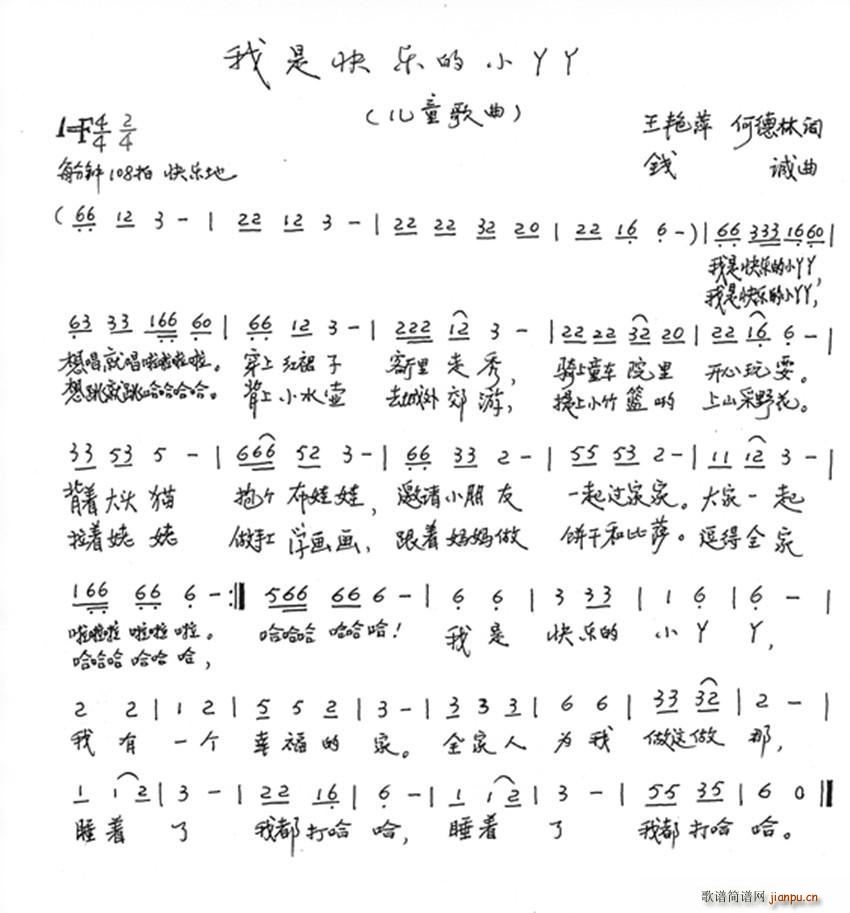 我是快乐的小丫丫
(儿童歌曲)
1=F 4/4 2/4
王艳萍 何德林词
每分钟108拍 快乐地
钱 诚曲
( 66 12 3 - | 22 12 3 - | 22 22 32 20 | 22 16 6 - ) | 66 333 16 60 |
我是快乐的小丫丫,
我是快乐的小丫丫,
63 33 166 60 | 66 12 3 - | 222 12 3 - | 22 22 32 20 | 22 16 6 - |
想唱就唱啦啦啦啦。穿上红裙子 客厅里走秀, 骑上童车院里 开心玩耍。
想跳就跳哈哈哈哈。背上小水壶 去城外郊游, 提上小竹篮哟 上山采野花。
33 53 5 - | 666 52 3 - | 66 33 2 - | 55 53 2 - | 11 12 3 - |
背着大头猫 抱个布娃娃, 邀请小朋友 一起过家家。大家一起
拉着姥姥 做手工 学画画, 跟着妈妈做 饼干和比萨。逗得全家
166 66 6 - :‖ 566 66 6 - | 6 6 | 3 33 | 1 6 | 6 - |
啦啦啦 啦啦 啦。 哈哈哈 哈哈哈! 我是 快乐的 小丫丫,
哈哈哈 哈哈 哈,
2 2 | 1 2 | 5 5 2 | 3 - | 3 3 3 | 6 6 | 33 32 | 2 - |
我有一个幸福的家。全家人为我 做这做那,
1 1 2 | 3 - | 22 16 | 6 - | 1 1 2 | 3 - | 55 35 | 6 0 ‖
睡着了 我都打哈哈, 睡着了 我都打哈哈。
歌谱简谱网 jianpu.cn